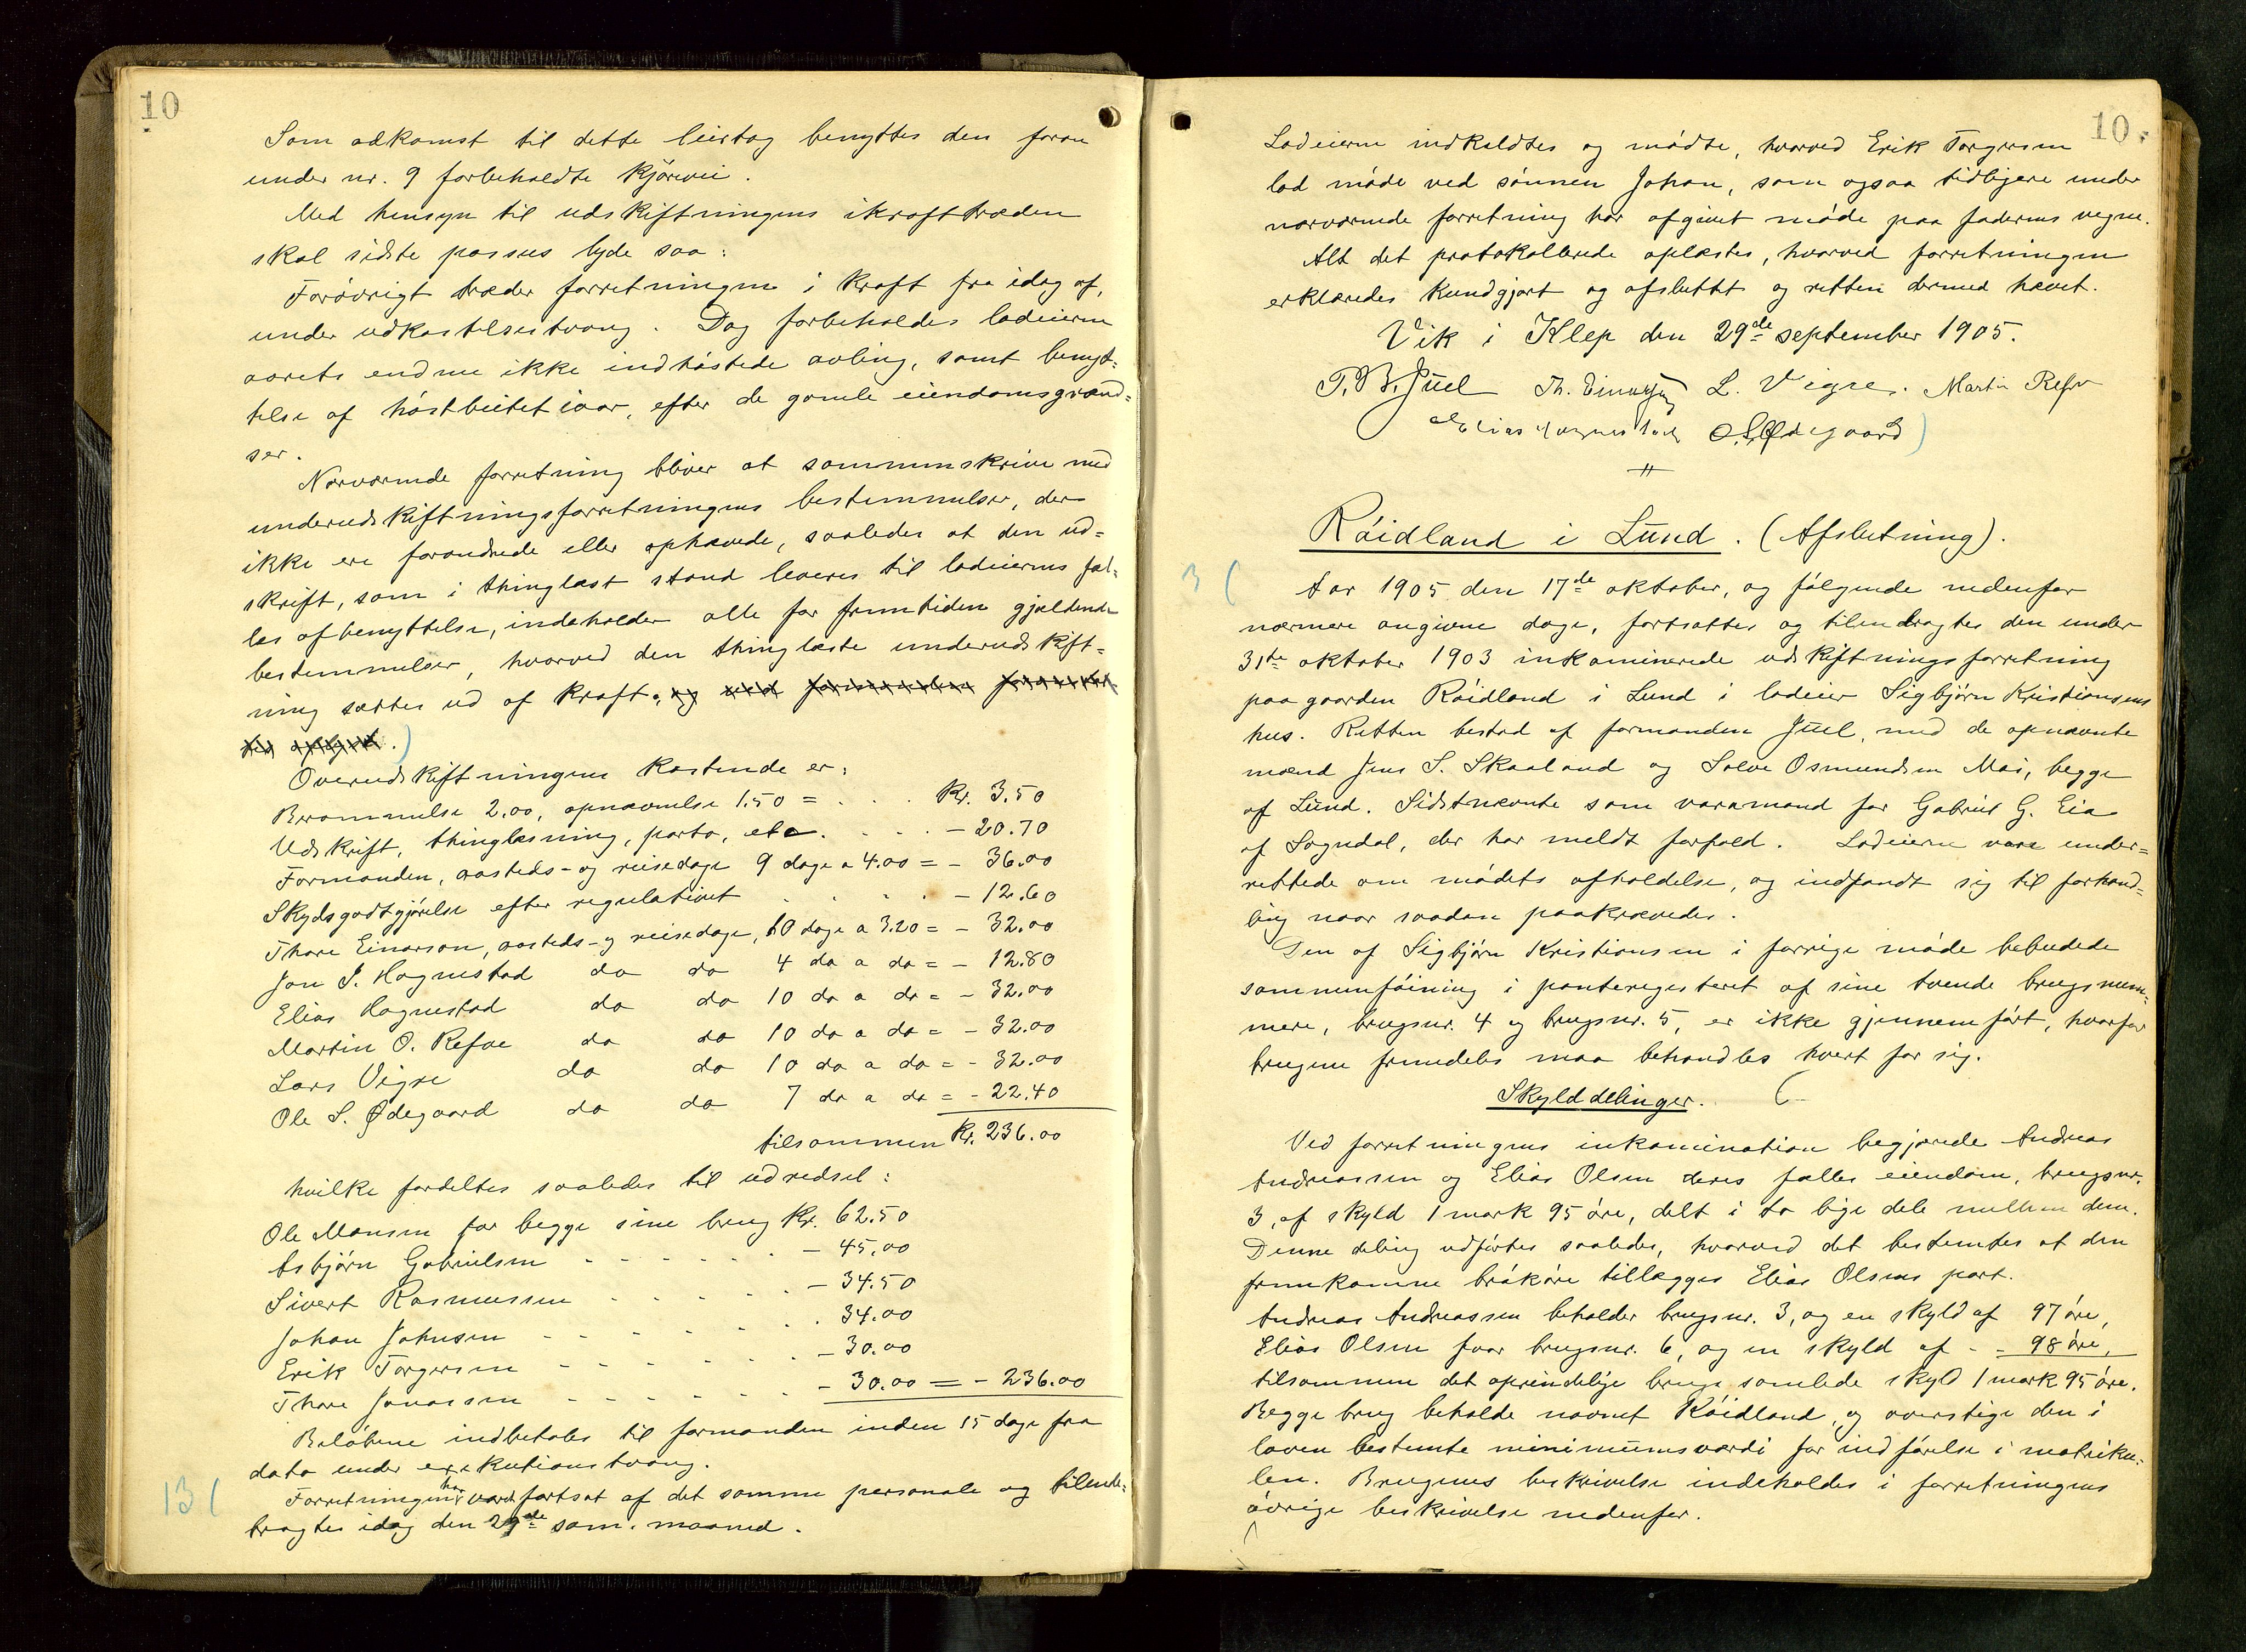 10
Som adkomst til dette leirtag benyttes den foran
under nr. 9 forbeholdte kjörevei.
Med hensyn til udskiftningens ikrafttræden
skal sidste passus lyde saa:
Forövrigt træder forretningen i kraft fra idag af,
under udkastelsestvang. Dog forbeholdes lodeierne
aarets endnu ikke indhöstede avling, samt benyt=
telse af höstbeitet iaar, efter de gamle eiendomsgrænd=
ser.
Nærværende forretning bliver at sammenskrive med
underudskiftningsforretningens bestemmelser, der
ikke ere forandrede eller ophævede, saaledes at den ud=
skrift, som i thinglæst stand leveres til lodeiernes fæl=
les afbenyttelse, indeholder alle for fremtiden gjældende
bestemmelser, hvorved den thinglæste underudskift=
ning sættes ud af kraft.
Overudskiftningens kostende er:
Berammelse 2.00, opnævnelse 1.50 = . . . Kr. 3.50
Udskrift, thinglæsning, porto, etc. . . . - 20.70
Formanden, aasteds- og reisedage 9 dage a 4.00 = - 36.00
Skydsgodtgjörelse efter regulativet . . . . - 12.60
Thore Einarson, aasteds- og reisedage, 10 dage a 3.20 = - 32.00
Jon J. Hognestad do do 4 do a do = - 12.80
Elias Hognestad do do 10 do a do = - 32.00
Martin O. Refve do do 10 do a do = - 32.00
Lars Vigre do do 10 do a do = - 32.00
Ole S. Ødegaard do do 7 do a do = - 22.40
tilsammen Kr. 236.00
hvilke fordeltes saaledes til udredsel:
Ole Monsen for begge sine brug Kr. 62.50
Asbjörn Gabrielsen - - - - - - 45.00
Sivert Rasmussen - - - - - - 34.50
Johan Johnsen - - - - - - . 34.00
Erik Torgersen - - - - - - 30.00
Thore Jonassen - - - - - - 30.00 = - 236.00
Belöbene indbetales til formanden inden 15 dage fra
dato under exekutionstvang.
13 ( Forretningen har været fortsat af det samme personale og tilende=
bragtes idag den 29de sam. maaned.
10.
Lodeierne indkaldtes og mödte, hvorved Erik Torgersen
lod möde ved sönnen Johan, som ogsaa tidligere under
nærværende forretning har afgivet möde paa faderens vegne.
Alt det protokollerede oplæstes, hvorved forretningen
erklæredes kundgjort og afsluttet og retten dermed hævet.
Vik i Klep den 29de september 1905.
T. B. Juel Th. Einarsen L. Vigre. Martin Refve
Elias Hognestad O. S. Ødegaard)
Röidland i Lund. (Afslutning).
3 ( Aar 1905 den 17de oktober, og fölgende nedenfor
nærmere angivne dage, fortsattes og tilendebragtes den under
31te oktober 1903 inkaminerede udskiftningsforretning
paa gaarden Röidland i Lund i lodeier Sigbjörn Kristiansens
hus. Retten bestod af formanden Juel, med de opnævnte
mænd Jens S. Skaaland og Salve Osmundsen Moi, begge
af Lund. Sidstnævnte som varamand for Gabriel G. Eia
af Sogndal, der har meldt forfald. Lodeierne vare under=
rettede om mödets afholdelse, og indfandt sig til forhand=
ling naar saadan paakrævedes.
Den af Sigbjörn Kristiansen i forrige möde bebudede
sammenföining i panteregisteret af sine tvende brugsnum=
mere, brugsnr. 4 og brugsnr. 5, er ikke gjennemfört, hvorfor
brugene fremdeles maa behandles hvert for sig.
Skylddelinger. (
Ved forretningens inkamination begjærede Andreas
Andreassen og Elias Olsen deres fælles eiendom, brugsnr.
3, af skyld 1 mark 95 öre, delt i to lige dele mellem dem.
Denne deling udförtes saaledes, hvorved det bestemtes at den
fremkomne brököre tillægges Elias Olsens part.
Andreas Andreassen beholder brugsnr. 3, og en skyld af 97 öre,
Elias Olsen faar brugsnr. 6, og en skyld af - - 98 öre,
tilsammen det oprindelige brugs samlede skyld 1 mark 95 öre.
Begge brug beholde navnet Röidland, og overstige den i
loven bestemte minimumsværdi for indförelse i matriku=
len. Brugenes beskrivelse indeholdes i forretningens
övrige beskrivelse nedenfor.